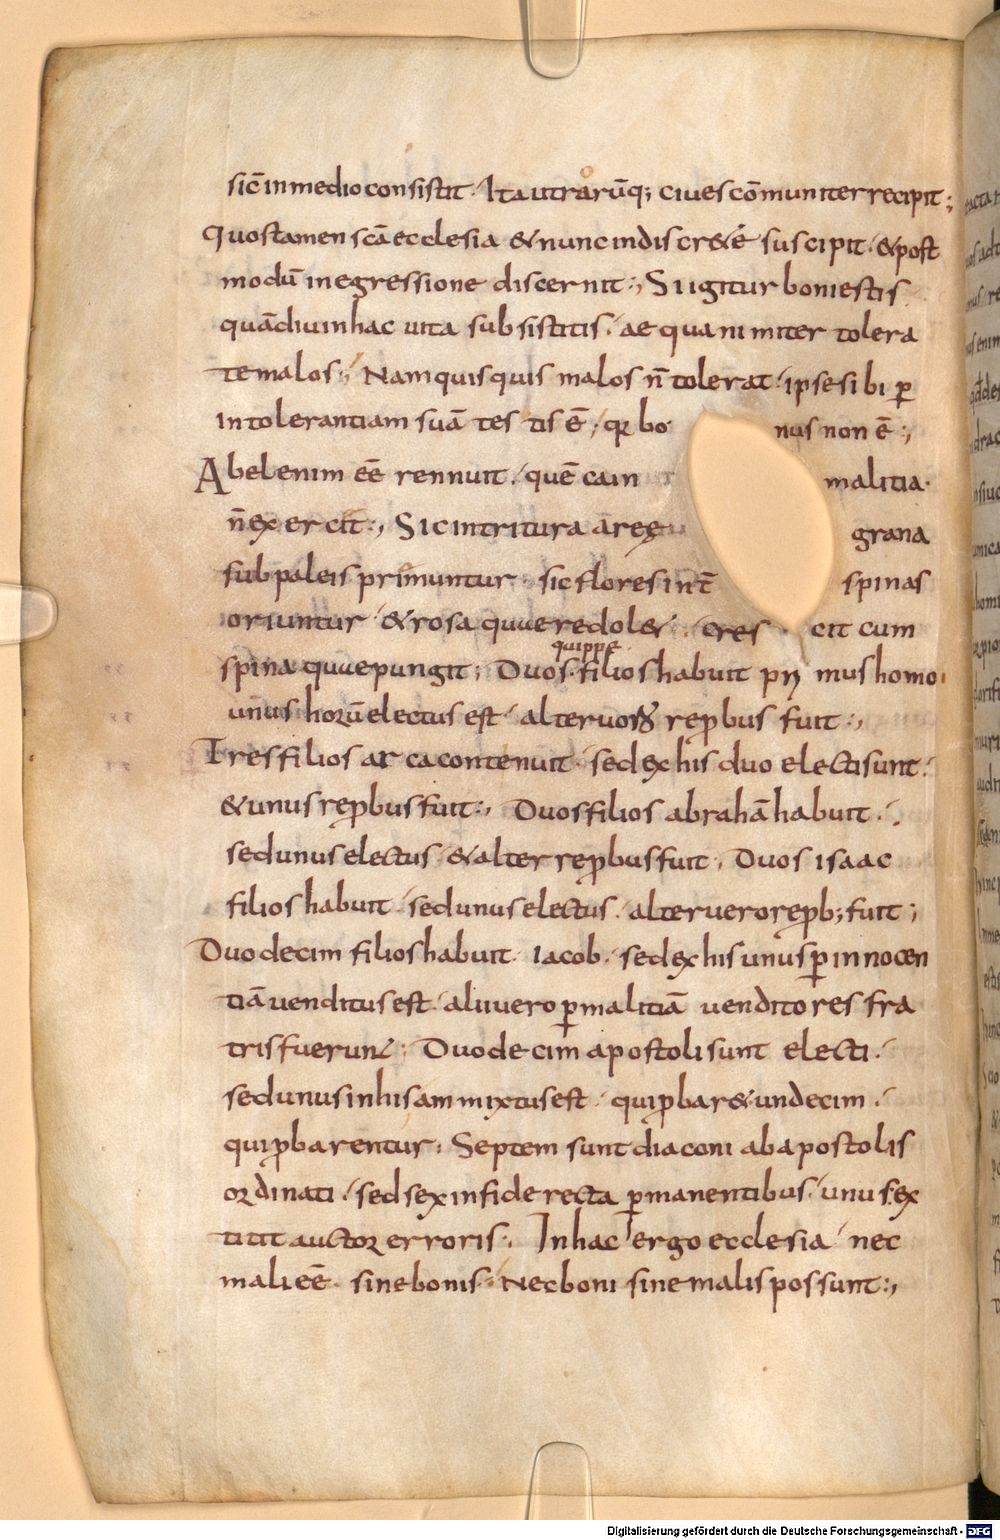 sic̄ in medio consistit. Ita utrarūq; ciues cōmuniter recipit;
Quos tamen scā ecclesia & nunc indiscr&ē suscipit. & post
modū in egressione discernit:, Si igitur boni estis
quādiu in hac uita subsistitis. aequanimiter tolera
te malos:, Nam quisquis malos n̄ tolerat. ipse sibi ꝑ
intolerantiam suā testis ē, qꝛ bonus non ē:,
Abel enim eē rennuit. quē cain malitia.
n̄ exercit:, Sic in tritura areę grana
sub paleis primuntur. sic flores int̄ spinas
oriuntur. & rosa quue redol&. crescit cum
spina quue pungit; Duos quippe filios habuit primus homo.
unus horū electus est. alter uoꝝ reꝓbus fuit:,
Tres filios arca contenuit. sed ex his duo electi sunt.
& unus reꝓbus fuit:, Duos filios abrahā habuit.,
sed unus electus & alter reꝓbus fuit, Duos isaac
filios habuit. sed unus electus. alter uero reꝓb; fuit;
Duodecim filios habuit. Iacob. sed ex his unus ꝑ innocen
tiā uenditus est. alii uero ꝑ malitiā uenditores fra
tris fuerunt; Duodecim apostoli sunt electi.
sed unus in his ammixtus est. qui ꝓbar& undecim.
qui ꝓbarentur. Septem sunt diaconi ab apostolis
ordinati. sed sex in fide recta ꝑmanentibus. unus ex
titit auctor erroris. In hac ergo ecclesia nec
mali eē sine bonis. Nec boni sine malis possunt:,
Digitalisierung gefördert durch die Deutsche Forschungsgemeinschaft - DFG